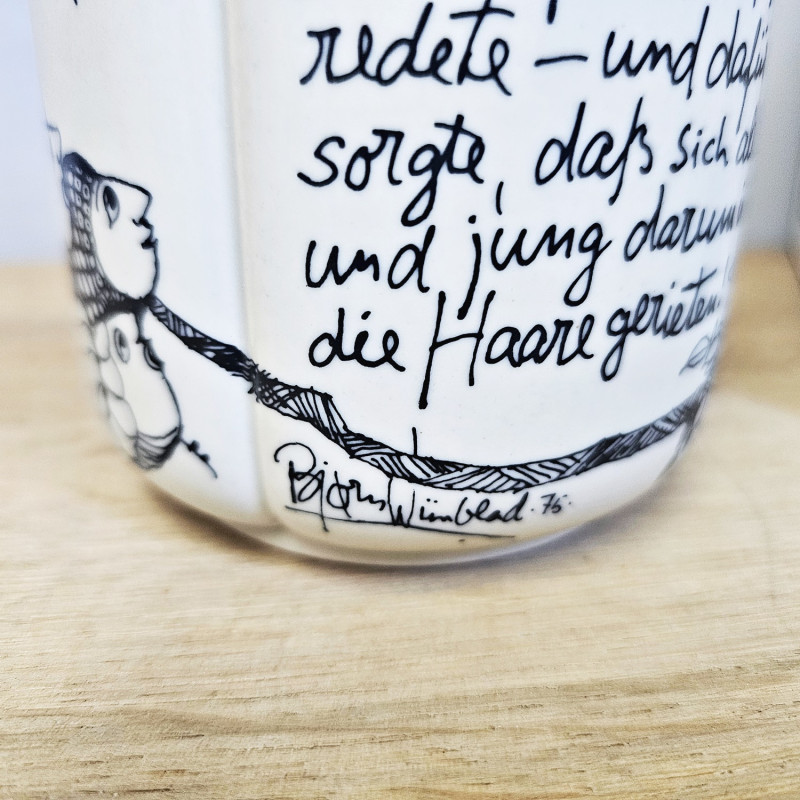 redete – und
sorgte, daß sich
und jung
die Haare gerieten.
Bjørn Wiinblad · 75 ·